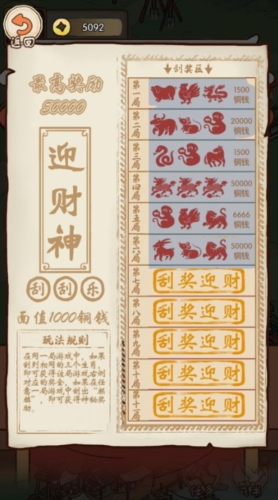 返回
5092
最高奖励
50000
迎财神
刮刮乐
面值1000铜钱
玩法规则
刮奖区
第一局
1500
铜钱
第二局
20000
铜钱
第三局
1500
铜钱
第四局
50000
铜钱
第五局
6666
铜钱
第六局
50000
铜钱
第七局
刮奖迎财
第八局
刮奖迎财
第九局
刮奖迎财
第十局
刮奖迎财
第十一局
刮奖迎财